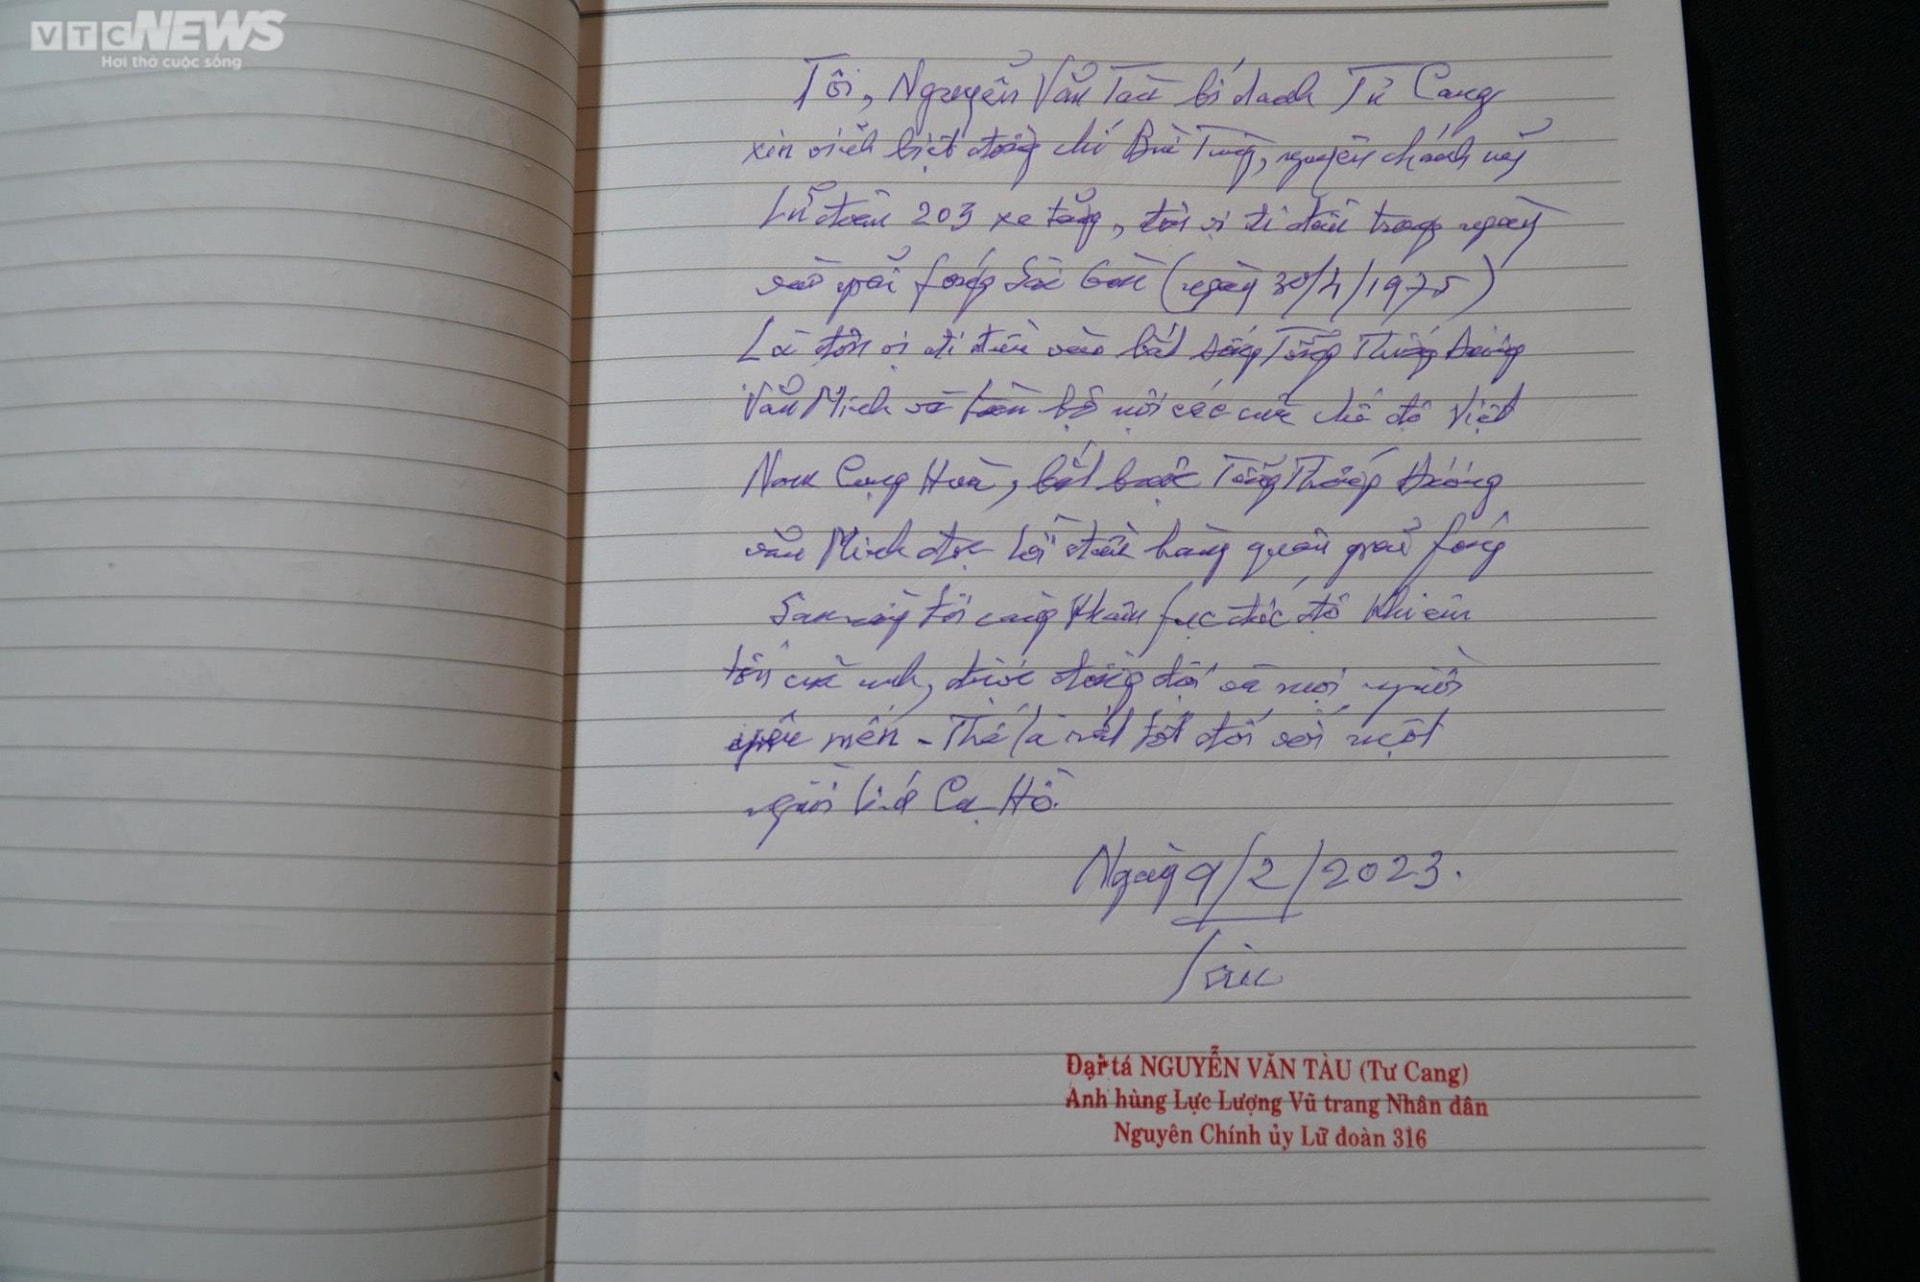 VTC NEWS
Hơi thở cuộc sống
Tôi, Nguyễn Văn Tàu bí danh Tư Cang
xin vĩnh biệt đồng chí Bùi Tùng, nguyên chính uỷ
Lữ đoàn 203 xe tăng, đơn vị đi đầu trong ngày
vào giải fóng Sài Gòn (ngày 30/4/1975)
Là đơn vị đi đầu vào bắt sống Tổng Thống Dương
Văn Minh và toàn bộ nội các của chế độ Việt
Nam Cộng Hoà, bắt buộc Tổng Thống Dương
văn Minh đọc lời đầu hàng quân giải fóng
Sau này tôi càng thâm fục đức độ khiêm
tốn của anh, được đồng đội và mọi người
yêu mến - Thế là rất tốt đối với một
người lính Cụ Hồ.
Ngày 9/2/2023.
Tàu
Đại tá NGUYỄN VĂN TÀU (Tư Cang)
Anh hùng Lực Lượng Vũ trang Nhân dân
Nguyên Chính ủy Lữ đoàn 316